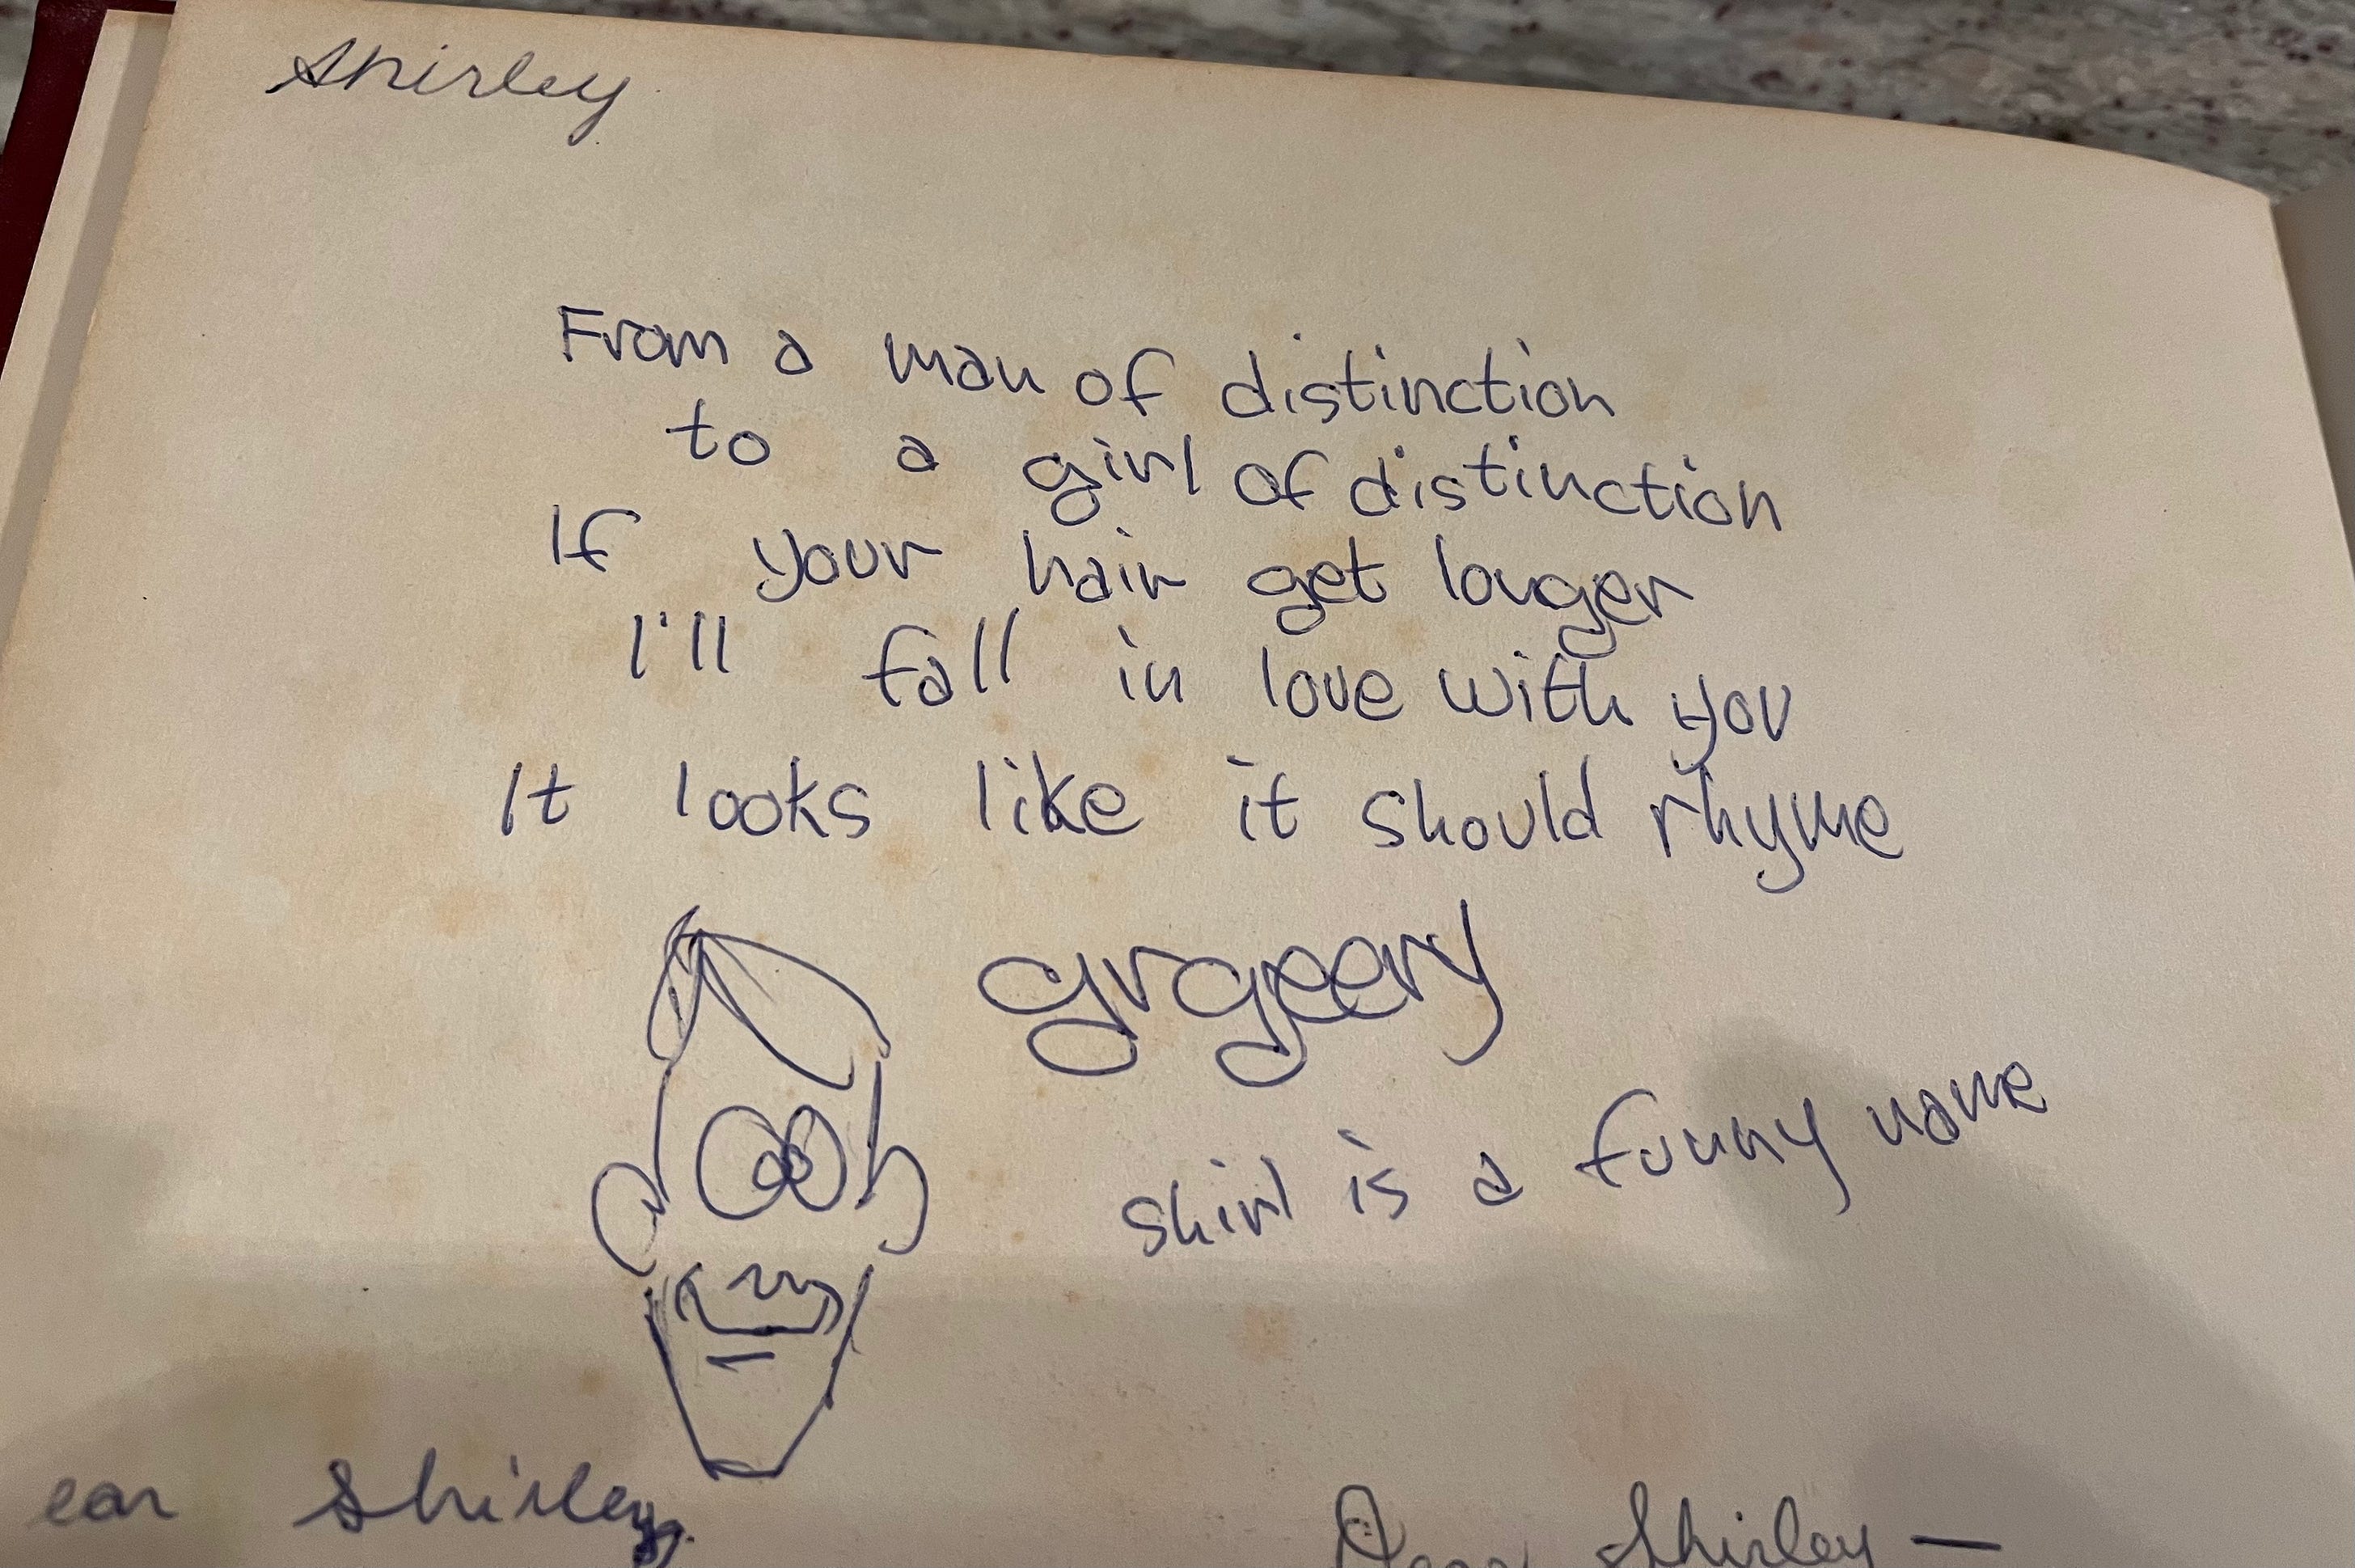 Shirley
From a man of distinction
to a girl of distinction
If your hair get longer
I'll fall in love with you
It looks like it should rhyme
grgeery
shirl is a funny name
ear Shirley
Dear Shirley —